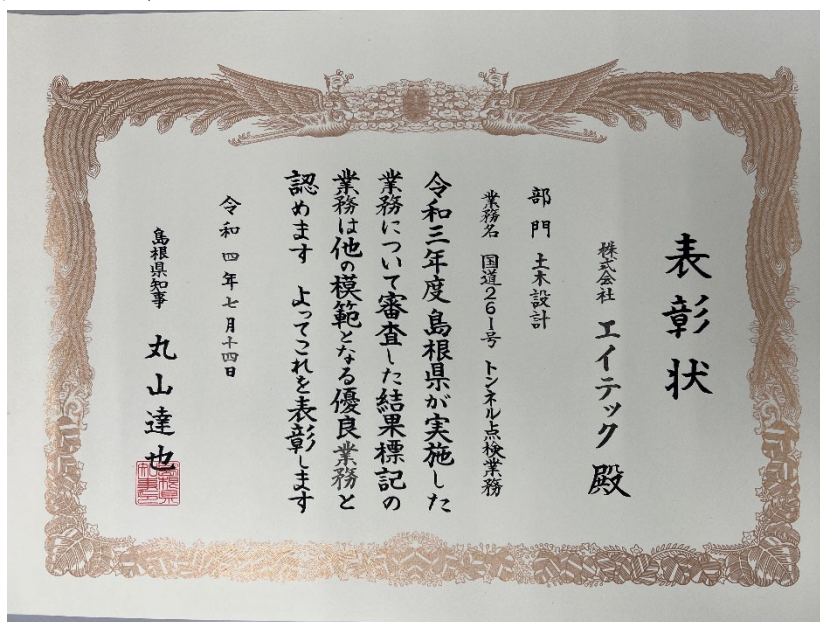 表彰状
株式会社 エイテック 殿
部門 土木設計
業務名 国道261号 トンネル点検業務
令和三年度島根県が実施した
業務について審査した結果標記の
業務は他の模範となる優良業務と
認めます よってこれを表彰します
令和四年七月十四日
島根県知事 丸山達也
島根県知事之印